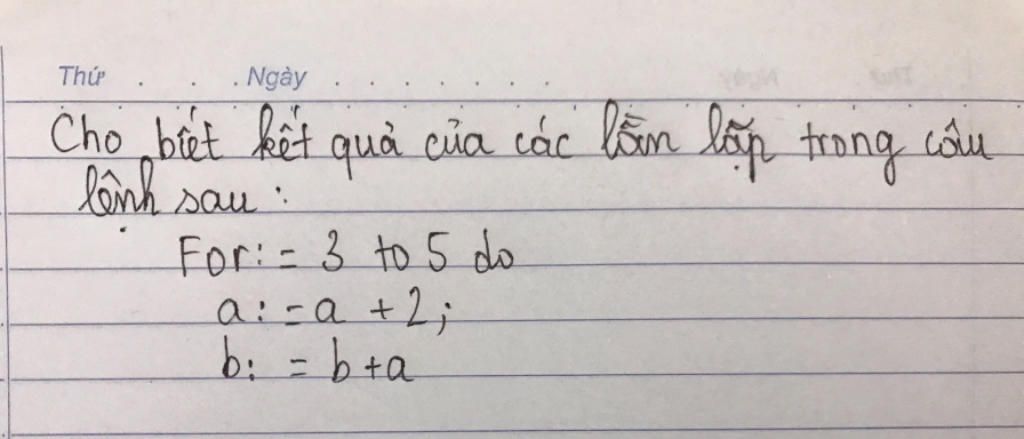 Thứ . . . Ngày . . . . . . .
Cho biết kết quả của các lần lặp trong câu
lệnh sau :
For:= 3 to 5 do
a:=a + 2;
b:= b+a